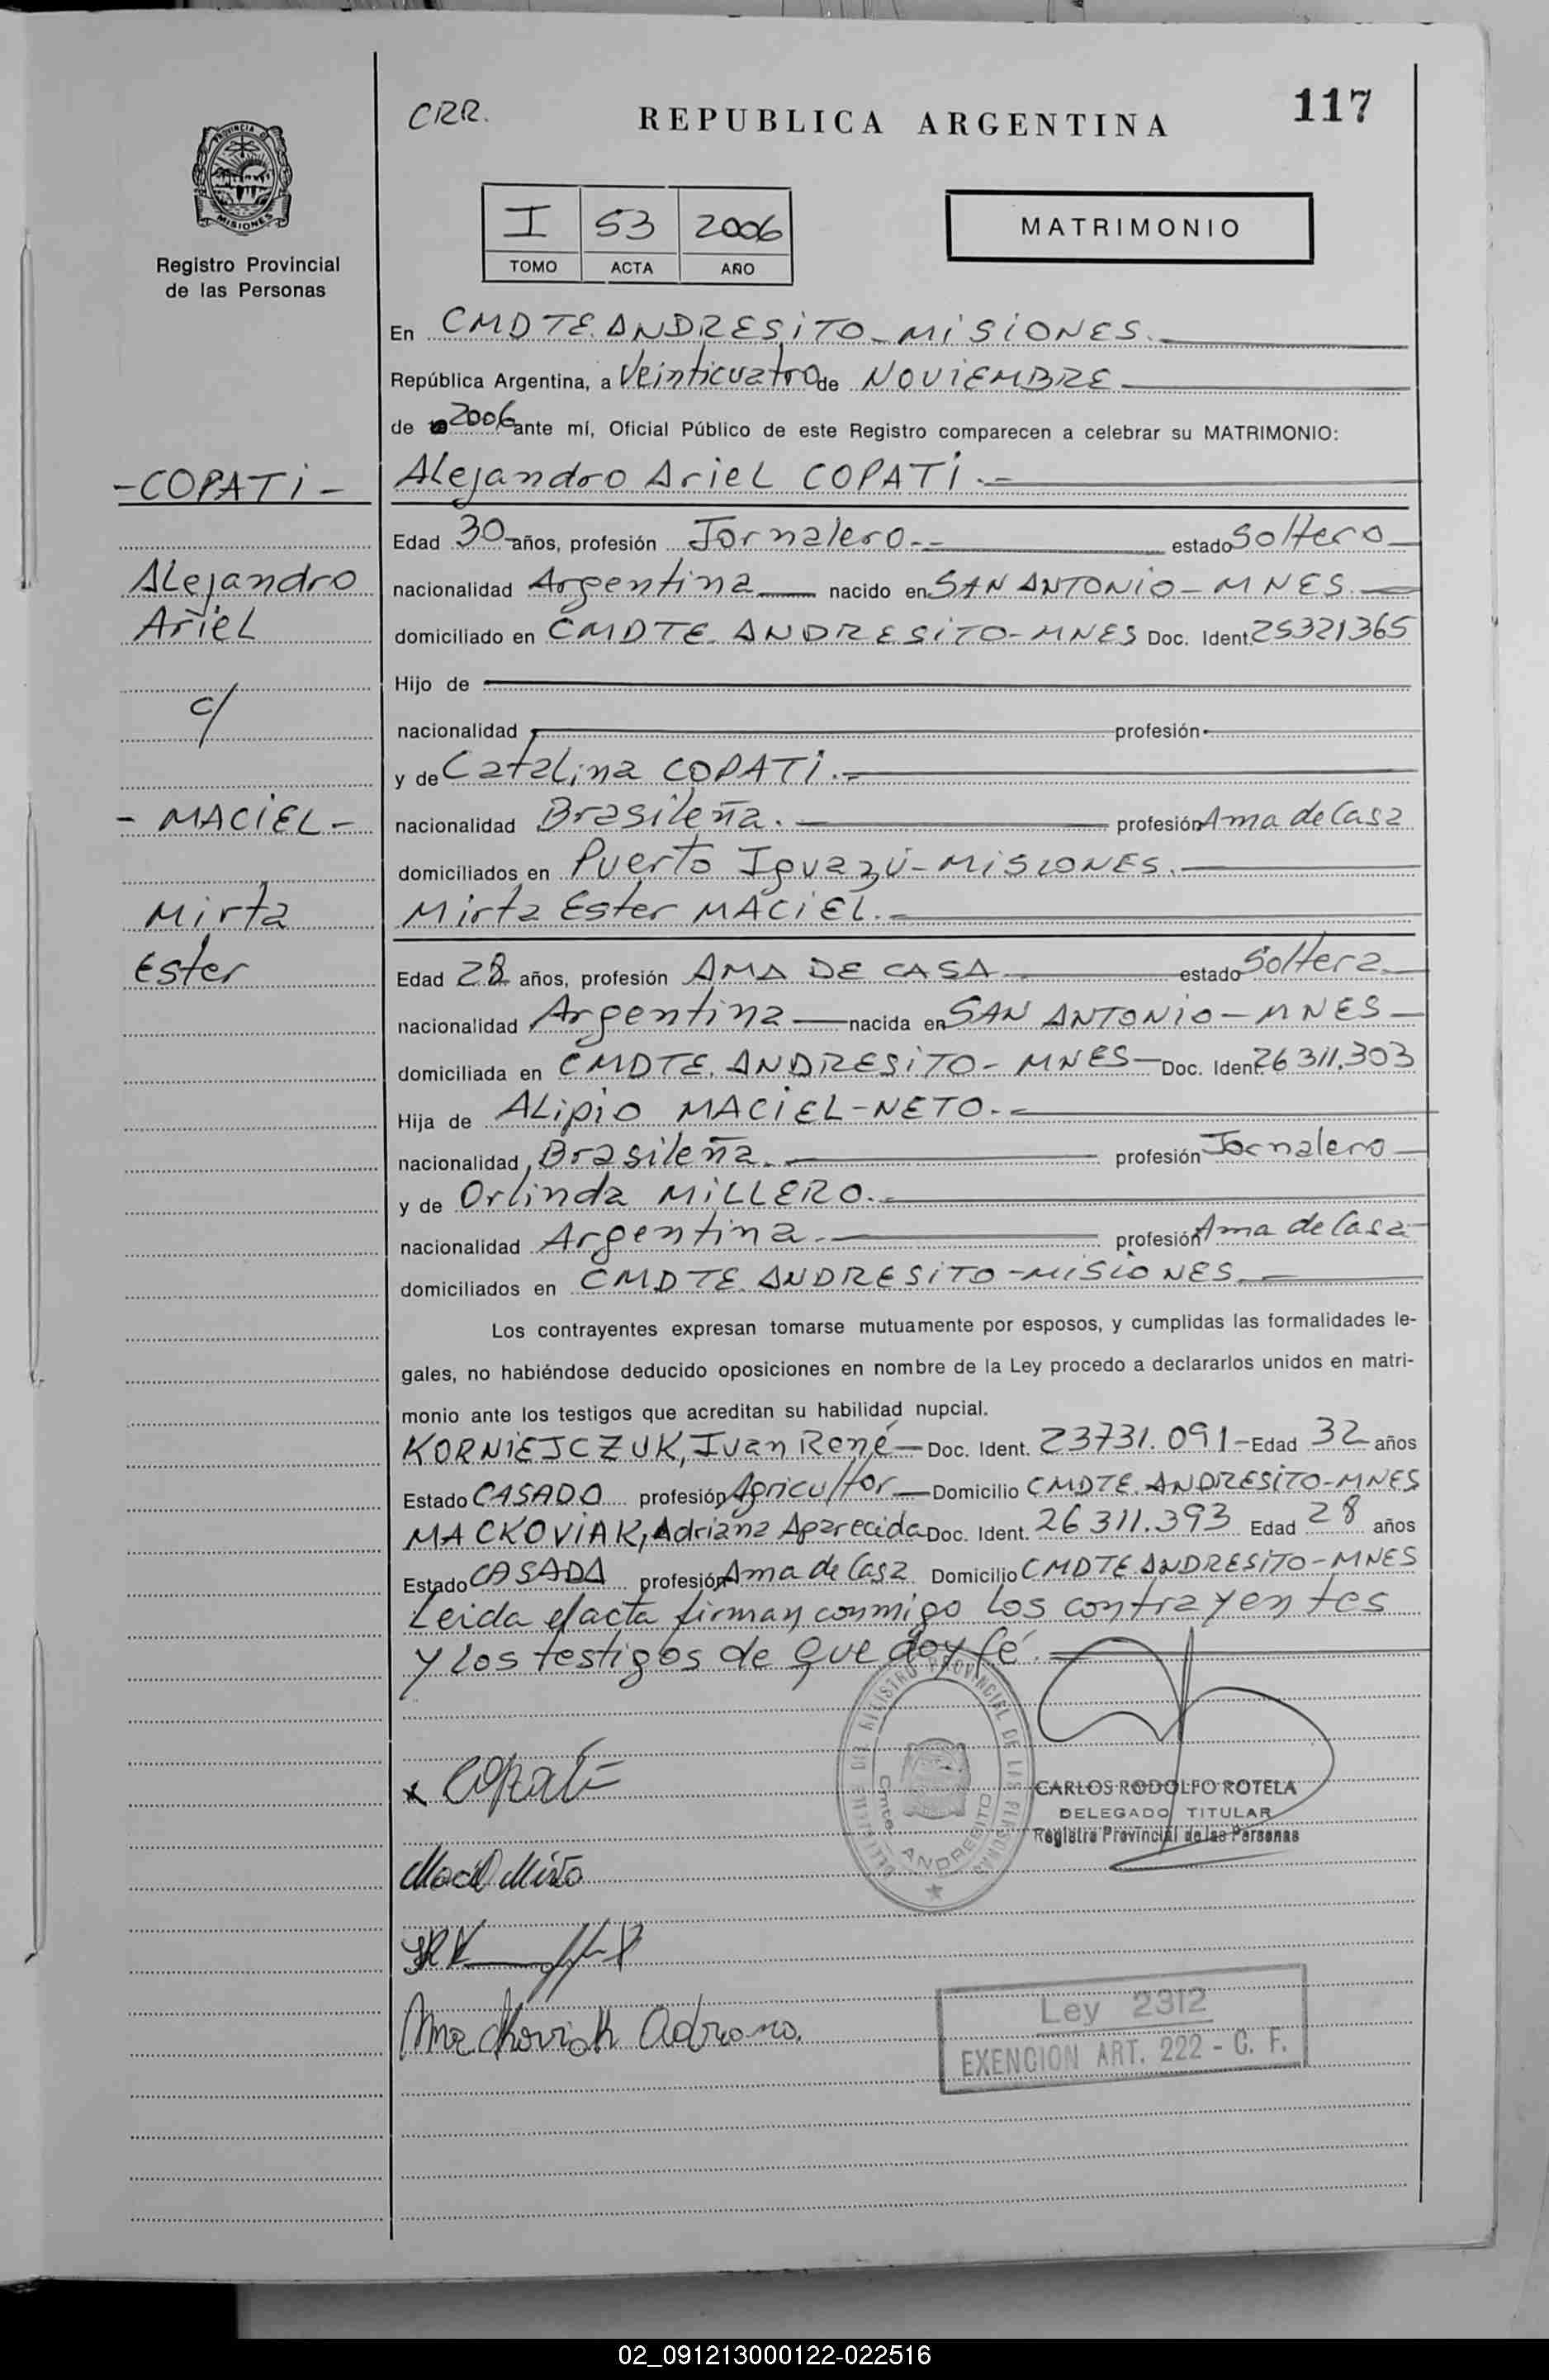 CRR.
REPUBLICA ARGENTINA
117
PROVINCIA DE
MISIONES
Registro Provincial
de las Personas
I 53 2006
TOMO ACTA AÑO
MATRIMONIO
En CMDTE. ANDRESITO - MISIONES.
República Argentina, a Veinticuatro de NOVIEMBRE
de 2006 ante mí, Oficial Público de este Registro comparecen a celebrar su MATRIMONIO:
- COPATI -
Alejandro Ariel COPATI.-
Edad 30 años, profesión Jornalero.-- estado Soltero
Alejandro
nacionalidad Argentina nacido en SAN ANTONIO - MNES.
Ariel
domiciliado en CMDTE. ANDRESITO - MNES Doc. Ident. 25321365
Hijo de
c/
nacionalidad profesión
y de Catalina COPATI.-
- MACIEL -
nacionalidad Brasileña. profesión Ama de Casa
domiciliados en Puerto Iguazú - MISIONES.
Mirta
Mirta Ester MACIEL.-
Ester
Edad 28 años, profesión AMA DE CASA estado Soltera
nacionalidad Argentina nacida en SAN ANTONIO - MNES
domiciliada en CMDTE. ANDRESITO - MNES Doc. Ident. 26311.303
Hija de ALipio MACIEL-NETO.-
nacionalidad Brasileña. profesión Jornalero
y de Orlinda MILLERO.-
nacionalidad Argentina. profesión Ama de Casa
domiciliados en CMDTE. ANDRESITO - MISIONES.
Los contrayentes expresan tomarse mutuamente por esposos, y cumplidas las formalidades le-
gales, no habiéndose deducido oposiciones en nombre de la Ley procedo a declararlos unidos en matri-
monio ante los testigos que acreditan su habilidad nupcial.
KORNIEJCZUK, Ivan René Doc. Ident. 23731.091 - Edad 32 años
Estado CASADO profesión Agricultor Domicilio CMDTE. ANDRESITO-MNES
MACKOVIAK, Adriana Aparecida Doc. Ident. 26311.393 Edad 28 años
Estado CASADA profesión Ama de Casa Domicilio CMDTE ANDRESITO-MNES
Leida el acta firman conmigo los contrayentes
y los testigos de que doy fé.
REGISTRO PROVINCIAL DE LAS PERSONAS
Cmte. ANDRESITO
x Copati
CARLOS RODOLFO ROTELA
DELEGADO TITULAR
Registro Provincial de las Personas
Maciel Mirta
Mackoviak Adriana.
Ley 2312
EXENCION ART. 222 - C. F.
02_091213000122-022516